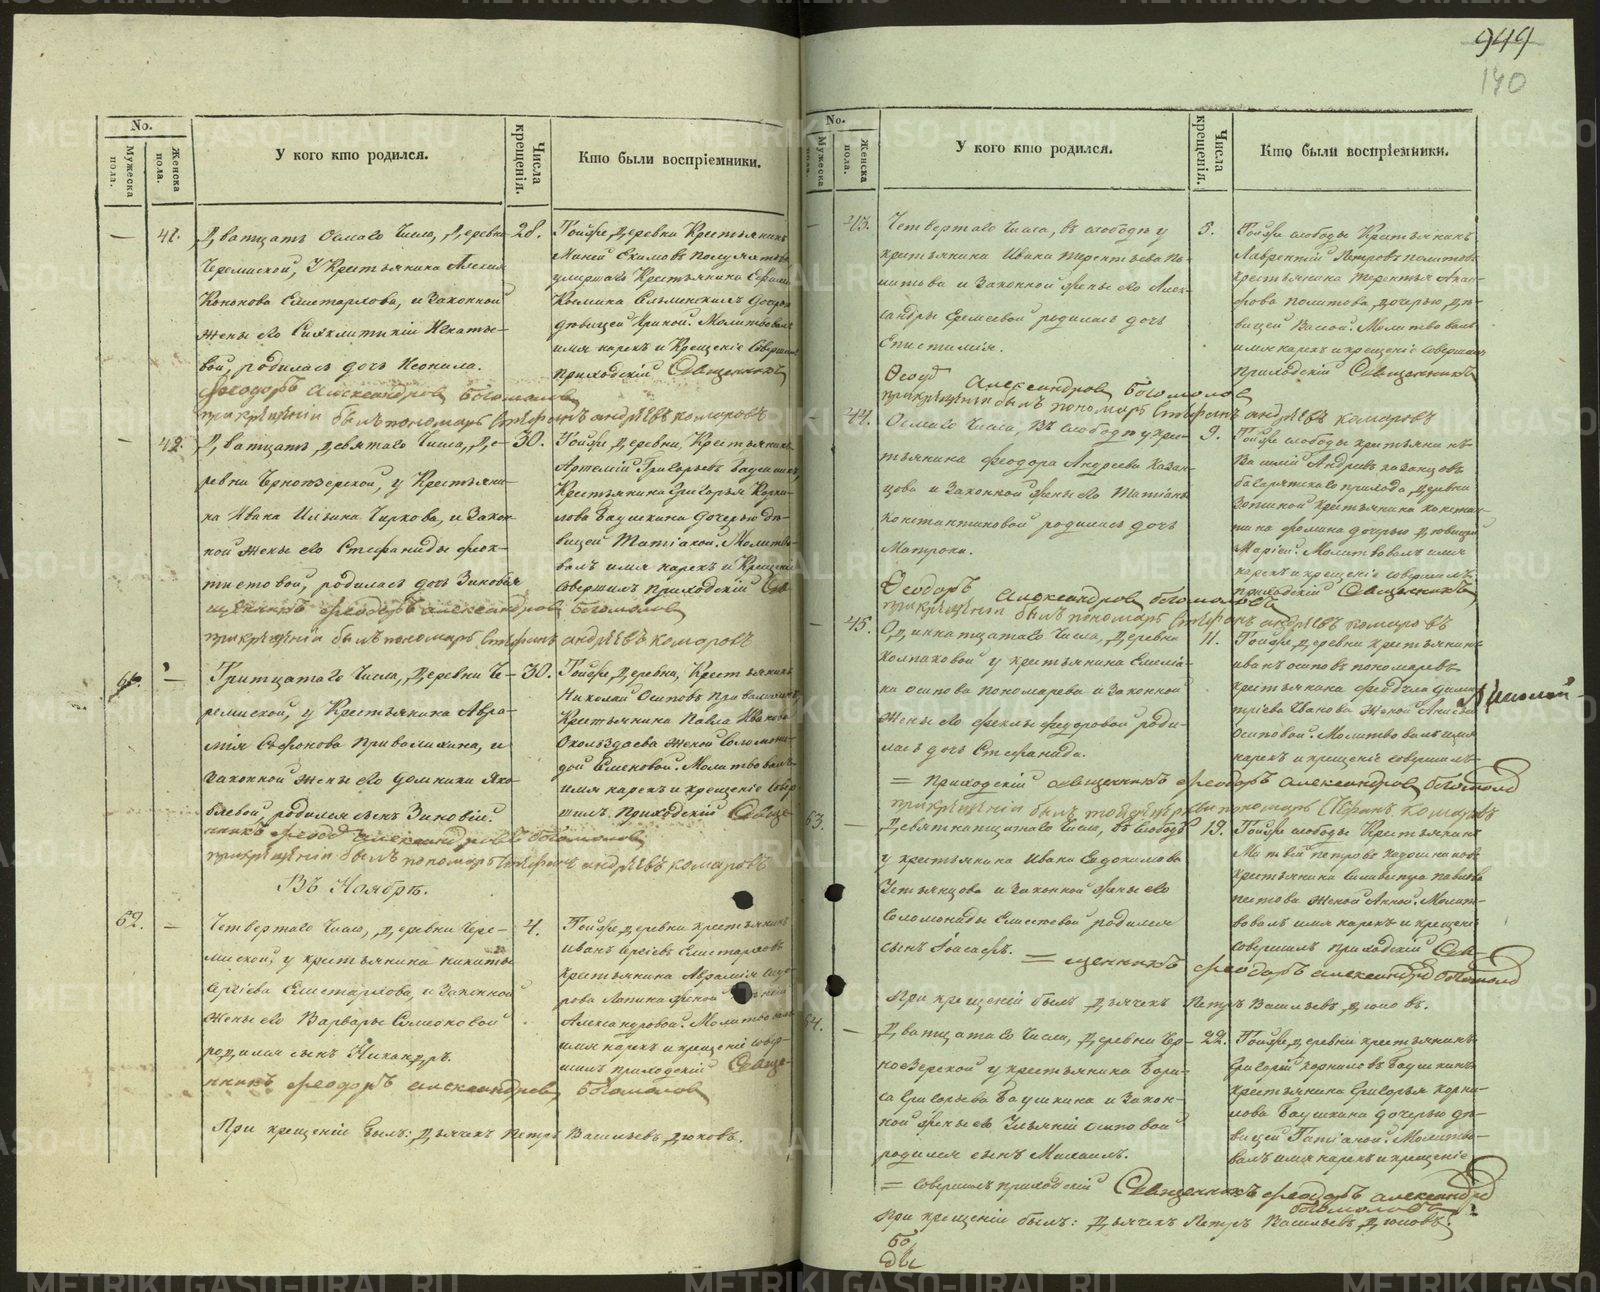 No.
Мужеска пола.
Женска пола.
У кого кто родился.
Числа крещенія.
Кто были воспріемники.
41.
Дватцать осмаго Числа, Деревни
Черемиской, У Крестьянина
жены его
вой, родилась дочь Неонила.
28.
Тойже Деревни Крестьянинъ
дѣвицей Ириной. Молитвовалъ
имя нарекъ и Крещеніе Совершилъ
приходскій Священникъ
Феодоръ Александровъ Богомоловъ
при крещеніи былъ пономарь Стефанъ андрѣевъ комаровъ
42.
Дватцать девятаго Числа, Де-
ревни Черноозерской, у Крестьяни-
на Ивана Ильина Чиркова, и Закон-
ной жены его Стефаниды Феок-
тистовой, родилась дочь Зиновья
30.
Тойже Деревни, Крестьянинъ
Артемій Григорьевъ Баушкинъ,
Крестьянина Григорья Корни-
лова Баушкина дочерью дѣ-
вицей Татіаной. Молитво-
валъ имя нарекъ и Крещеніе
Совершилъ приходскій Свя-
щенникъ Феодоръ александровъ Богомоловъ
при крещеніи былъ пономарь Стефанъ андрѣевъ комаровъ
Тритцатаго Числа, Деревни Че-
ремиской, у Крестьянина Авра-
мія Софонова Привалихина, и
Законной жены его Домники Яко-
влевой, родился сынъ Зиновій.
30.
Тойже Деревни, Крестьянинъ
Николай Осиповъ Привалихинъ
Крестьянина Павла Иванова
женой Соломони-
дой Семеновой. Молитвовалъ
имя нарекъ и крещеніе Совер-
шилъ Приходскій Свяще-
нникъ Феодоръ Александровъ Богомоловъ
при крещеніи былъ пономарь Стефанъ андрѣевъ комаровъ
Въ Ноябрѣ.
62.
Четвертаго Числа, Деревни Чере-
миской, у крестьянина никиты
Сергіева Елистарова, и Законной
жены его Варвары Симеоновой
родился сынъ Никандръ.
4.
Тойже деревни крестьянинъ
иванъ Сергіевъ Елистаровъ
крестьянина Аврамія
Александровой. Молитвовалъ
имя нарекъ и крещеніе совер-
шилъ приходскій Свяще-
нникъ Феодоръ александровъ Богомоловъ
При крещеніи былъ: Дьячекъ Петръ Васильевъ Дюковъ.
949
140
No.
Мужеска пола.
Женска пола.
У кого кто родился.
Числа крещенія.
Кто были воспріемники.
43.
Четвертаго Числа, въ слободѣ у
крестьянина Ивана Терентьева По-
питова и Законной жены его Алек-
сандры Еремеевой родилась дочь
Епистимія.
5.
Тойже слободы Крестьянинъ
Лаврентій Петровъ
крестьянина Терентья
дочерью дѣ-
вицей Васой. Молитвовалъ
имя нарекъ и крещеніе совершилъ
приходскій Священникъ
Александровъ Богомоловъ
при крещеніи былъ пономарь Стефанъ андрѣевъ комаровъ
44.
Осмаго Числа, Въ Слободѣ у кре-
стьянина Феодора Андреева Казан-
цова и Законной жены его Татіаны
Константиновой родилась дочь
Матрона.
9.
Тойже слободы крестьянинъ
Василій Андреевъ казанцовъ
багаряцкаго прихода, деревни
Зотиной крестьянина констан-
тина Фомина дочерью дѣвицей
Маріей. Молитвовалъ имя
нарекъ и крещеніе совершилъ
приходскій Священникъ
Феодоръ Александровъ Богомоловъ
при крещеніи былъ пономарь Стефанъ андрѣевъ комаровъ
45.
Одиннатцатаго Числа, Деревни
Колпаковой у крестьянина Емеліа-
на осипова пономарева и Законной
жены его Феклы Федоровой роди-
лась дочь Стефанида.
11.
Тойже деревни крестьянинъ
иванъ осиповъ пономаревъ
крестьянина
тріева Иванова женой Анисьей
осиповой. Молитвовалъ имя
нарекъ и крещеніе совершилъ
= приходскій священникъ Феодоръ Александровъ Богомолов
63.
Девятнатцатаго Числа, въ слободѣ
у крестьянина Ивана Евдокимова
Устьянцова и Законной жены его
Соломониды Елисеевой родился
сынъ Іоасафъ.
19.
Тойже слободы Крестьянинъ
Матвей петровъ
крестьянина Силивестра
женой Анной. Молит-
вовалъ имя нарекъ и крещеніе
совершилъ приходскій Свя-
= щенникъ Феодоръ александров Богомолов
При крещеніи былъ Дьячекъ Петръ Васильевъ Дюковъ.
64.
Дватцатаго Числа, Деревни Чер-
ноозерской у крестьянина Бори-
са Григорьева Баушкина и Закон-
ной жены его Ульяній осиповой
родился сынъ Михаилъ.
22.
Тойже деревни крестьянинъ
Григорій корниловъ Баушкинъ
крестьянина Григорья корни-
лова Баушкина дочерью дѣ-
вицей Татіаной. Молитво-
валъ имя нарекъ и крещеніе
= совершилъ приходскій Священникъ Феодоръ александров
Богомоловъ
При крещеніи былъ: Дьячекъ Петръ Васильевъ Дюковъ.